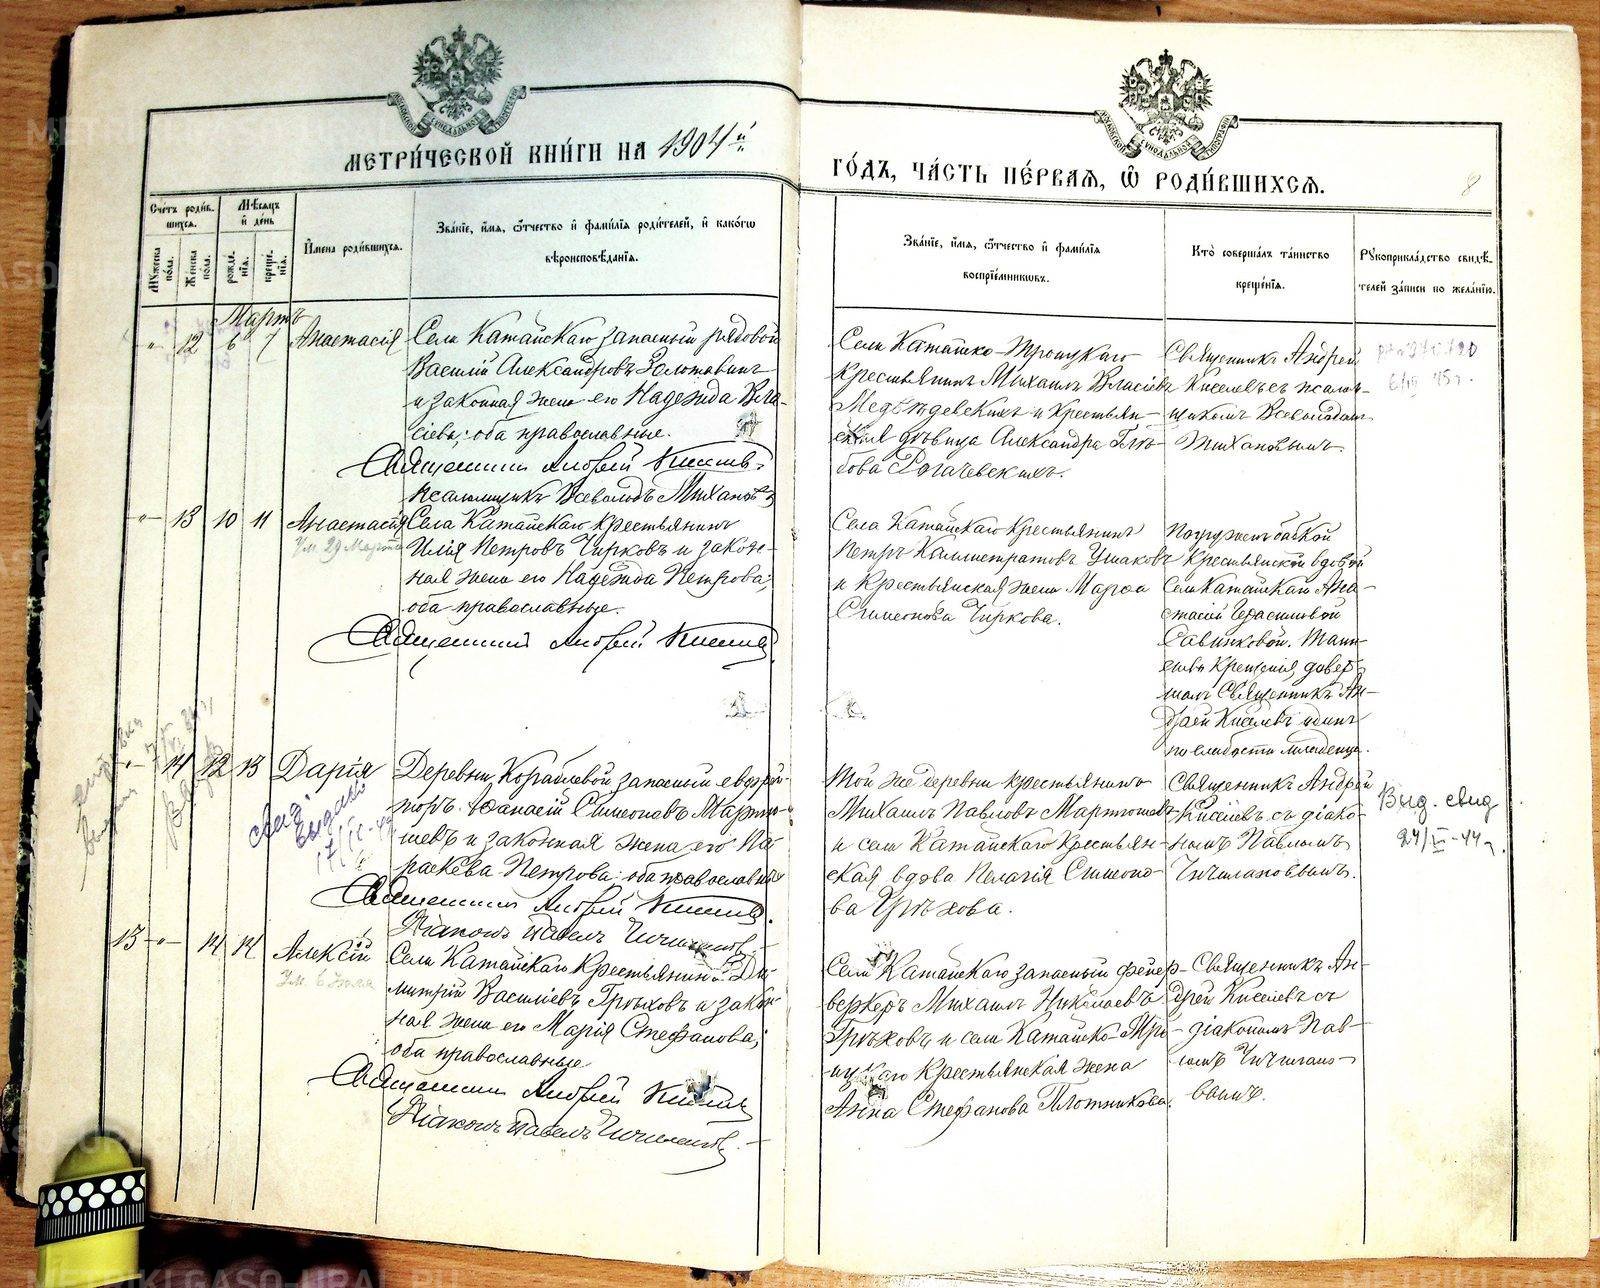 МЕТРИ́ЧЕСКОЙ КНИ́ГИ НА 1904й
ГО́ДЪ, ЧА́СТЬ ПЕ́РВАЯ, Ѡ РОДИ́ВШИХСЯ.
8
Сче́тъ роди́в-
шихся.
Мѣсяцъ
и де́нь
Мꙋжеска по́ла.
Же́нска по́ла.
рожде́нїя.
креще́нїя.
И́мена роди́вшихся.
Зва́нїе, и́мя, ѻ́тчество и фами́лїя роди́телей, и како́гѡ
вѣроисповѣ́данїя.
Зва́нїе, и́мя, ѻ́тчество и фами́лїя
воспрїе́мникѡвъ.
Кто̀ соверша́лъ та́инство
креще́нїя.
Рꙋкоприкла́дство свидѣ́-
телей за́писи по жела́нїю.
Мартъ
" 12 6 7 Анастасія
Села Катайскаго запасный рядовой
Василій Александровъ Золотавинъ
и законная жена его Надежда Вла-
сіева; оба православные.
Священникъ Андрей Киселевъ
псаломщикъ Всеволодъ Тихановъ
Села Катайско-Троицкаго
крестьянинъ Михаилъ Власіевъ
Медвѣдевскихъ и крестьян-
ская дѣвица Александра Глѣ-
бова Рогачевскихъ.
Священникъ Андрей
Киселевъ съ псалом-
щикомъ Всеволодомъ
Тихановымъ.
" 13 10 11 Анастасія
Ум. 29 Марта
Села Катайскаго крестьянинъ
Илія Петровъ Чирковъ и закон-
ная жена его Надежда Петрова;
оба православные.
Священникъ Андрей Киселевъ
Села Катайскаго крестьянинъ
Петръ Каллистратовъ Ушаковъ
и крестьянская жена Марѳа
Симеонова Чиркова.
Погружен бабкой
крестьянской вдовой
Села Катайскаго Ана-
стасіей Герасимовой
Савинковой. Таин-
ство крещенія довер-
шалъ Священникъ Ан-
дрей Киселевъ одинъ
по слабости младенца.
" 14 12 13 Дарія
свид. выдано
Деревни Кораблевой запасный ефрей-
торъ Аѳанасій Симеоновъ Мартю-
шевъ и законная жена его Па-
раскева Петрова; оба православные
Священникъ Андрей Киселевъ.
Діаконъ Павелъ Чичилановъ.
Той же деревни крестьянинъ
Михаилъ Павловъ Мартюшевъ
и села Катайскаго крестьян-
ская вдова Пелагія Симеоно-
ва Грѣхова.
Священникъ Андрей
Киселевъ съ діако-
номъ Павломъ
Чичилановымъ.
Выд. свид
13 " 14 14 Алексій
Ум. 6 Іюня
Села Катайскаго крестьянинъ Ди-
митрій Василіевъ Грѣховъ и закон-
ная жена его Марія Стефанова;
оба православные
Священникъ Андрей Киселевъ
Діаконъ Павелъ Чичилановъ.
Села Катайскаго запасный фейер-
веркеръ Михаилъ Николаевъ
Грѣховъ и села Катайско-Тро-
ицкаго крестьянская жена
Анна Стефанова Плотникова.
Священникъ Ан-
дрей Киселевъ съ
діакономъ Пав-
ломъ Чичилано-
вымъ.